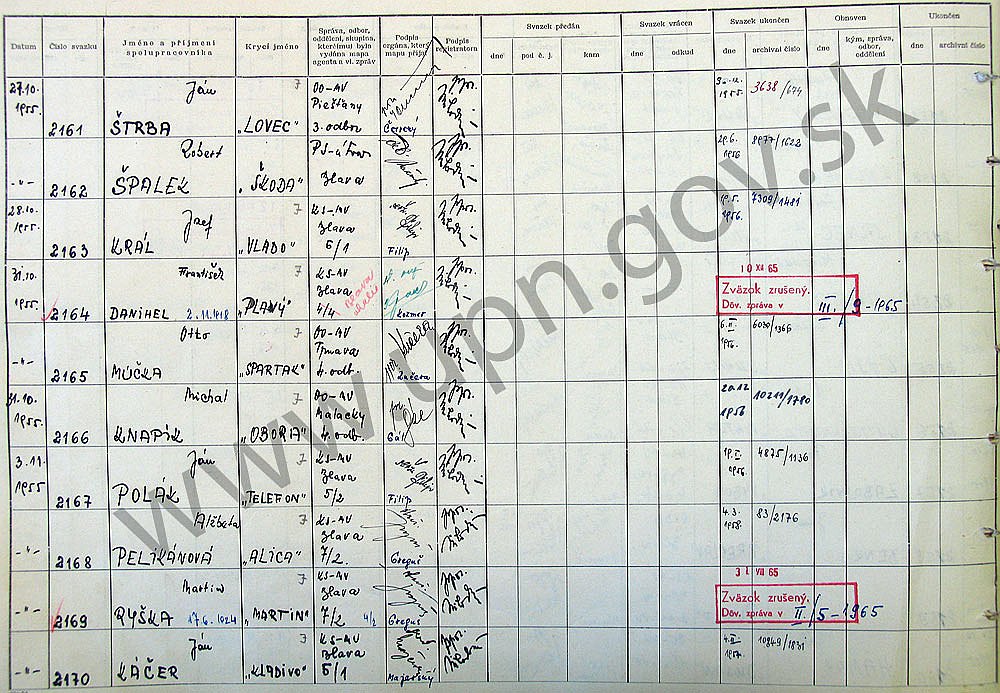 Datum
Číslo svazku
Jméno a příjmení
spolupracovníka
Krycí jméno
Správa, odbor,
oddělení, skupina,
kterému byla
vydána mapa
agenta a vl. zpráv
Podpis
orgána, který
mapu přijal
Podpis
registrátora
Svazek předán
dne
pod č. j.
kam
Svazek vrácen
dne
odkud
Svazek ukončen
dne
archivní číslo
Obnoven
dne
kým, správa,
odbor,
oddělení
Ukončen
dne
archivní číslo
27.10.
1955.
2161
Ján
ŠTRBA
„LOVEC"
7
OO-AV
Piešťany
3. odbor
Červený
1955.
3638/674
-"-
2162
Robert
ŠPALEK
„ŠKODA"
Ilava
29.6.
1956
8977/1622
28.10.
1955.
2163
Jozef
KRÁL
„VLADO"
7
KS-AV
Ilava
6/1
Filip
19.5.
1956.
7309/1481
31.10.
1955.
2164
František
DANIHEL 2.11.1918
„PLANÝ"
7
KS-AV
Ilava
4/4
Kozmer
10 XI 65
Zväzok zrušený.
Dôv. zpráva v III./9-1965
-"-
2165
Otto
MÚČKA
„SPARTAK"
OO-AV
Trnava
4. odb.
Zučera
6.II.
1956.
6030/1366
31.10.
1955.
2166
Michal
KNAPÍK
„OBORA"
7
OO-AV
Malacky
4. odb.
Gál
20.12
1956
10211/1790
3.11.
1955
2167
Ján
POLÁK
„TELEFON"
7
KS-AV
Ilava
5/2
Filip
1956.
4875/1136
-"-
2168
Alžbeta
PELIKÁNOVÁ
„ALICA"
7
KS-AV
Ilava
7/2.
Greguš
4.3.
1958.
83/2176
-"-
2169
Martin
RYŠKA 17.6.1924
„MARTIN"
7
KS-AV
Ilava
7/2
4/2
Greguš
31 VII 65
Zväzok zrušený.
Dôv. zpráva v II/5-1965
-"-
2170
Ján
KÁČER
„KLADIVO"
7
KS-AV
Ilava
5/1
Majerský
1957.
10949/1831
www.upn.gov.sk